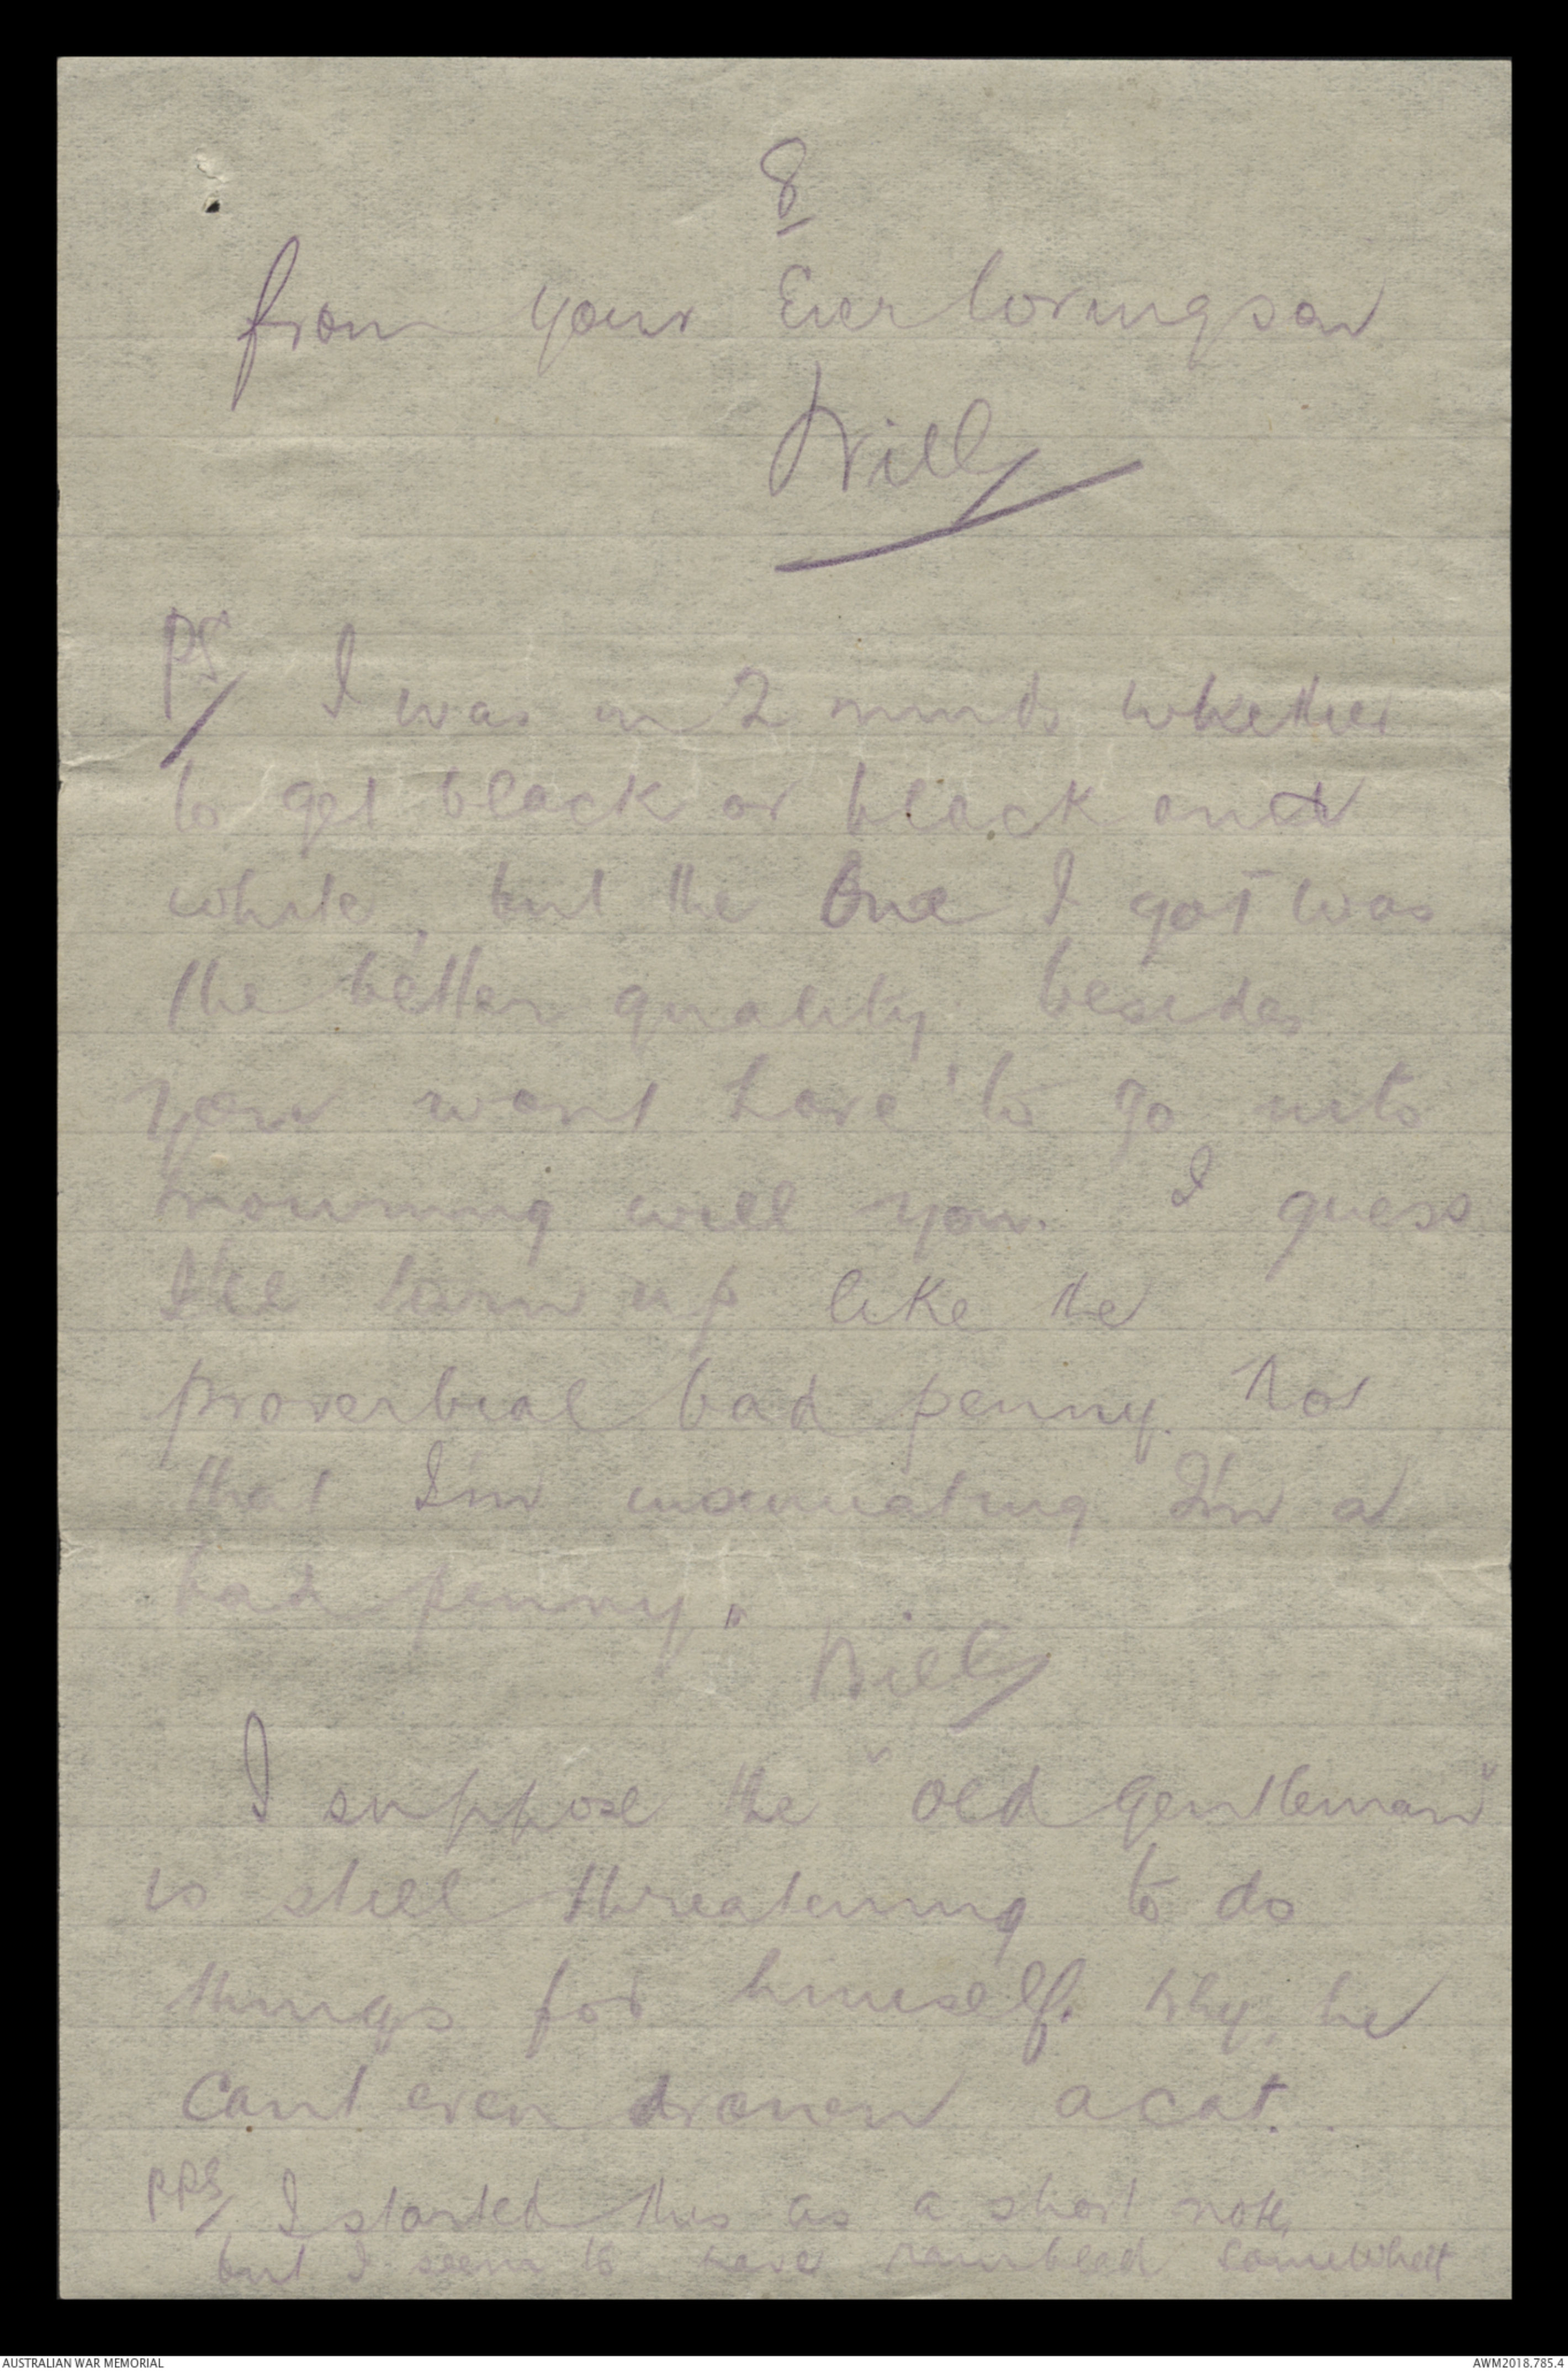 8
from your Ever loving son
Willy
PS/ I was in 2 minds whether
to get black or black and
white, but the One I got was
the better quality besides
you wont have to go into
mourning will you. I guess
I'll turn up like the
proverbial bad penny. Not
that I'm insinuating I'm a
bad penny."
Willy
I suppose the "old gentleman"
is still threatening to do
things for himself. Why, he
cant even drown a cat.
PPS/ I started this as a short note,
but I seem to have rambled somewhat
AUSTRALIAN WAR MEMORIAL
AWM2018.785.4